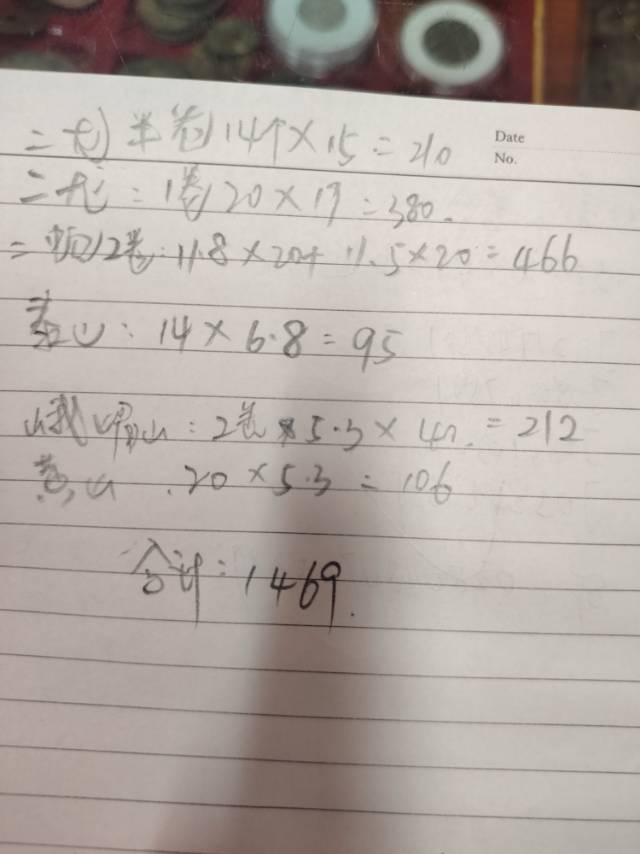 Date
No.
二龙半卷14个×15=210
二龙:1卷20×19=380.
2卷:11.8×20+11.5×20=466
泰山:14×6.8=95
峨眉山:2卷×5.3×40=212
黄山.20×5.3=106
合计:1469.